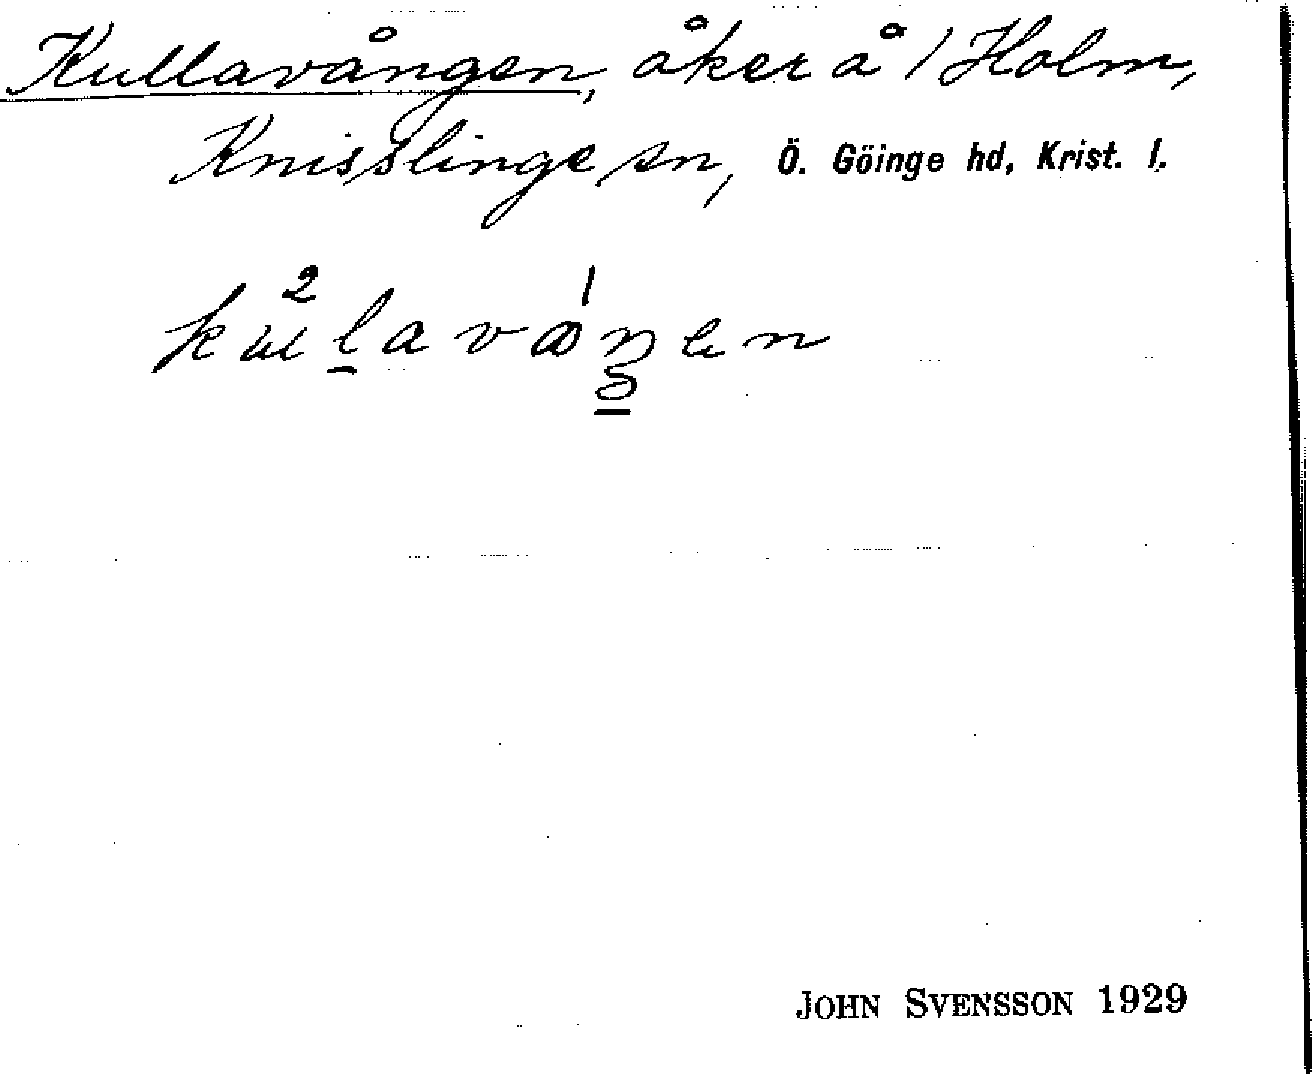 Kullavången, åker å / Holm,
Knisslinge sn, Ö. Göinge hd, Krist. l.
JOHN SVENSSON 1929